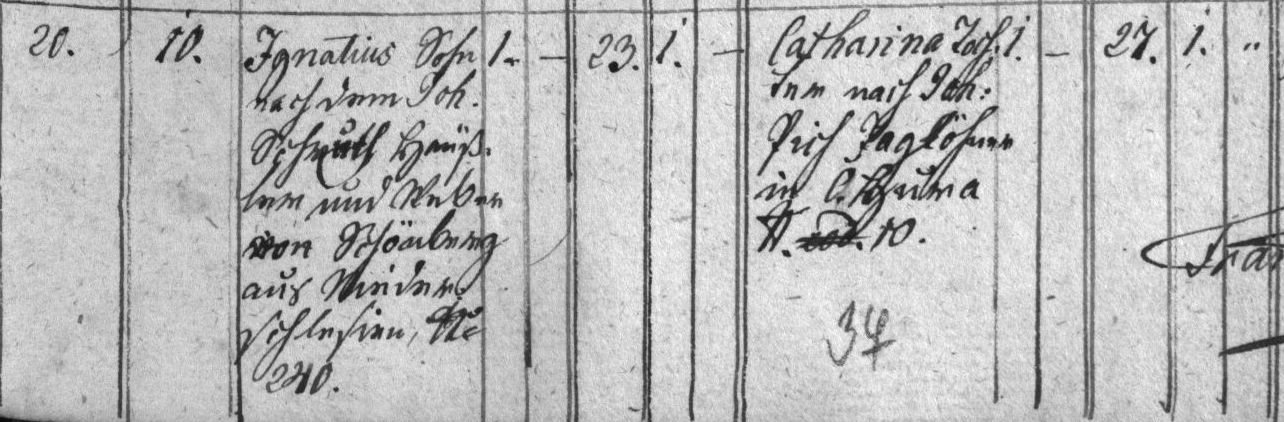 20.
10.
Ignatius Sohn
nach dem Joh.
Schmuth Häuß-
lern und Weber
von Schömberg
aus Nieder-
schlesien, Nr
240.
1. –
23. 1. –
Catharina Toch-
ter nach Joh:
Pich Taglöhner
in
N. 10.
1. –
27. 1. "
34